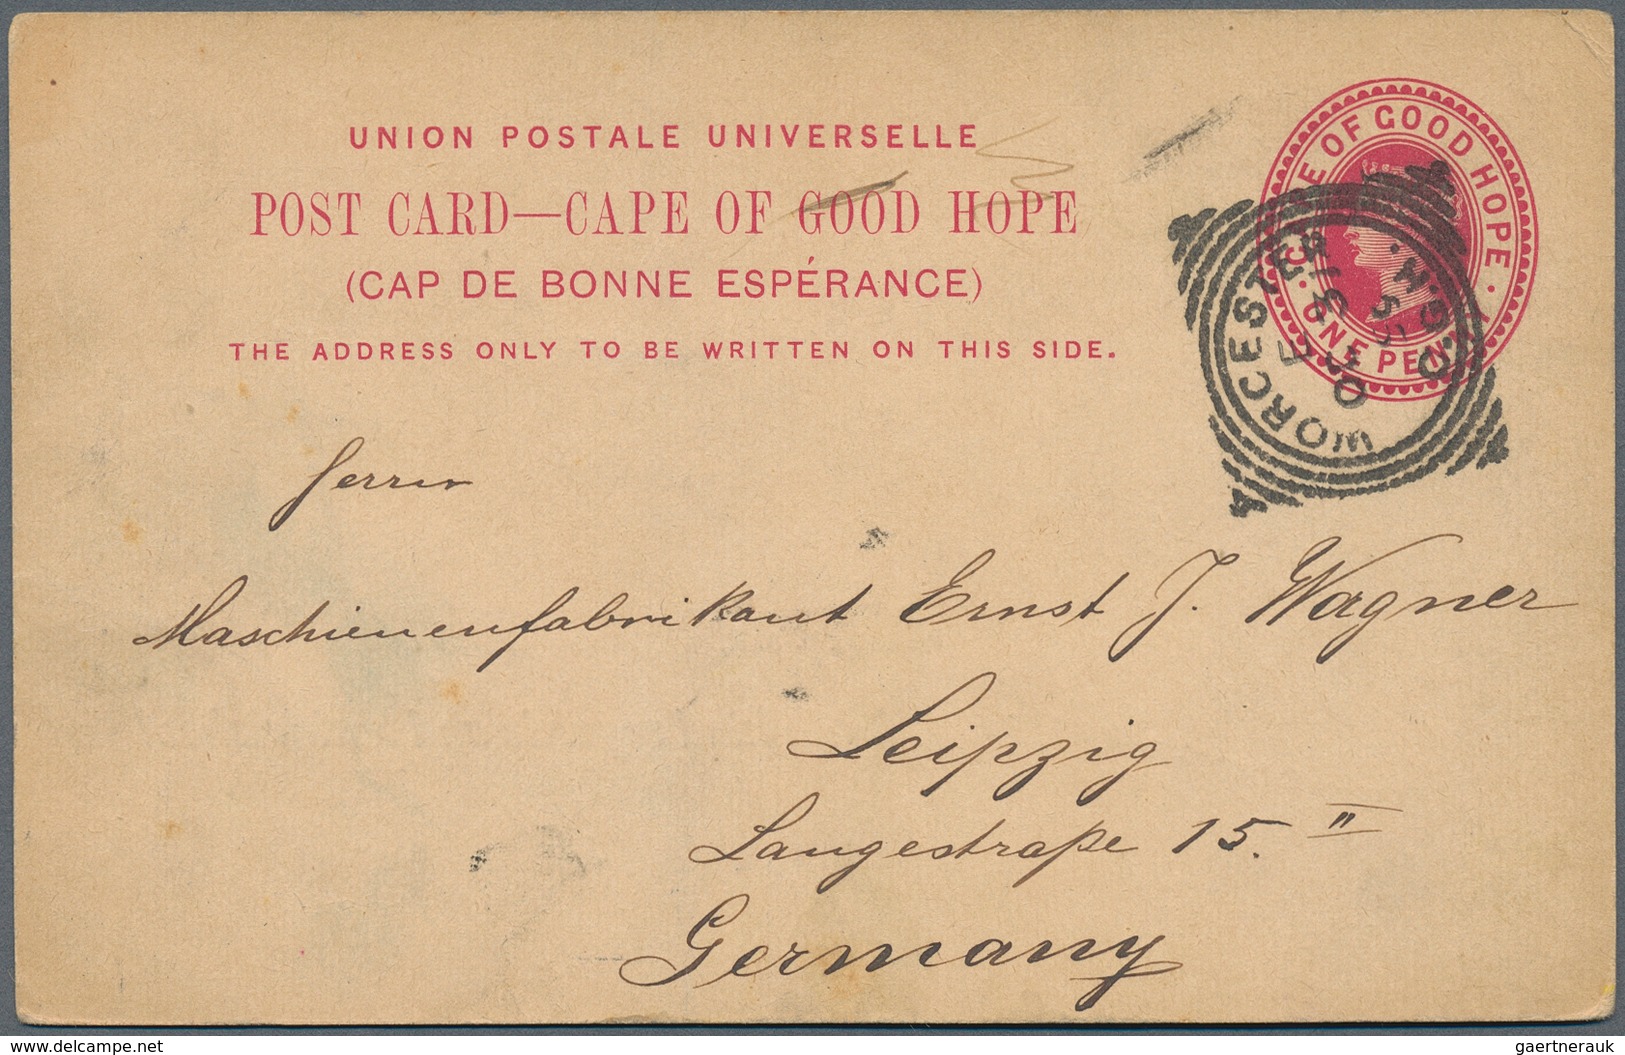 UNION POSTALE UNIVERSELLE
POST CARD—CAPE OF GOOD HOPE
(CAP DE BONNE ESPÉRANCE)
THE ADDRESS ONLY TO BE WRITTEN ON THIS SIDE.
CAPE OF GOOD HOPE
ONE PENNY
WORCESTER
C.G.H.
Herrn
Maschienenfabrikant Ernst J. Wagner
Leipzig
Langestraße 15. II
Germany
www.delcampe.net
gaertnerauk